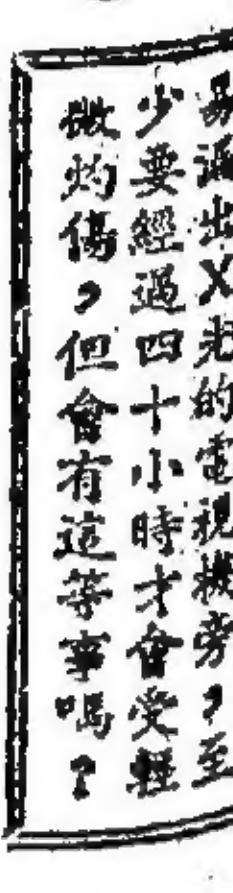 易漏出X光的電視機旁，至
少要經過四十小時才會受輕
微灼傷，但會有這等事嗎？